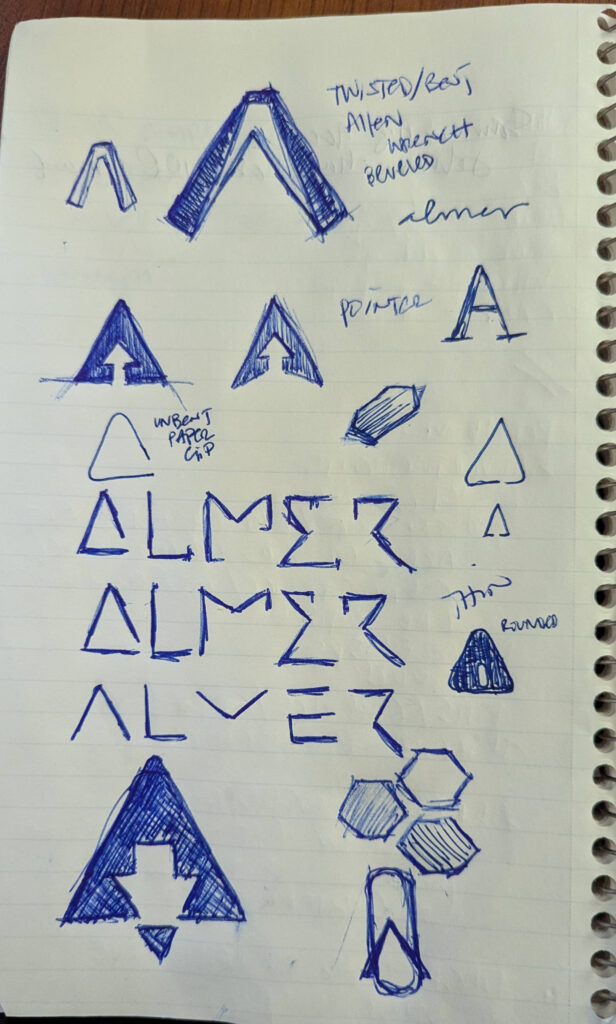 TWISTED/BENT
Allen
WRENCH
BEVELED
almer
POINTER
A
UNBENT
PAPER
CLIP
ALMER
ALMER
THIN
ROUNDED
ALMER